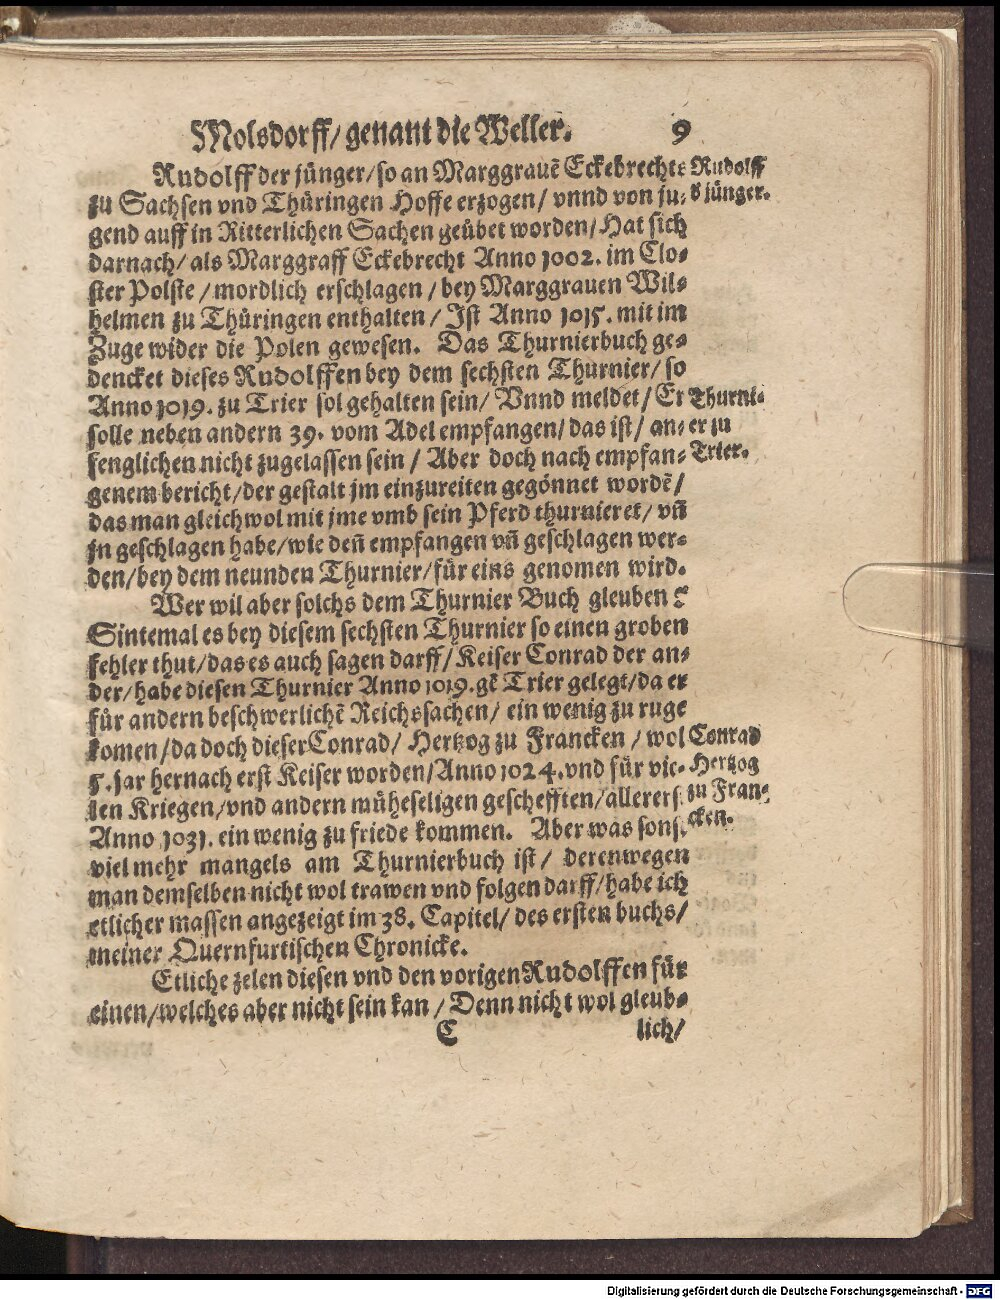 Molsdorff/ genant die Weller. 9
Rudolff der jünger/ so an Marggrauē Eckebrechts
zu Sachsen vnd Thüringen Hoffe erzogen/ vnnd von ju⸗
gend auff in Ritterlichen Sachen geübet worden/ Hat sich
darnach/ als Marggraff Eckebrecht Anno 1002. im Clo⸗
ster Polste/ mordlich erschlagen/ bey Marggrauen Wil⸗
helmen zu Thüringen enthalten/ Ist Anno 1015. mit im
Zuge wider die Polen gewesen. Das Thurnierbuch ge⸗
dencket dieses Rudolffen bey dem sechsten Thurnier/ so
Anno 1019. zu Trier sol gehalten sein/ Vnnd meldet/ Er
solle neben andern 39. vom Adel empfangen/ das ist/ an⸗
fenglichen nicht zugelassen sein/ Aber doch nach empfan⸗
genem bericht/ der gestalt jm einzureiten gegönnet wordē/
das man gleichwol mit jme vmb sein Pferd thurnieret/ vn̄
jn geschlagen habe/ wie den̄ empfangen vn̄ geschlagen wer⸗
den/ bey dem neunden Thurnier/ für eins genomen wird.
Wer wil aber solchs dem Thurnier Buch gleuben?
Sintemal es bey diesem sechsten Thurnier so einen groben
fehler thut/ das es auch sagen darff/ Keiser Conrad der an⸗
der/ habe diesen Thurnier Anno 1019. gē Trier gelegt/ da er
für andern beschwerlichē Reichssachen/ ein wenig zu ruge
komen/ da doch dieser Conrad/ Hertzog zu Francken/ wol
5. jar hernach erst Keiser worden/ Anno 1024. vnd für vie⸗
len Kriegen/ vnd andern müheseligen geschefften/ allererst
Anno 1031. ein wenig zu friede kommen. Aber was sonst
viel mehr mangels am Thurnierbuch ist/ derenwegen
man demselben nicht wol trawen vnd folgen darff/ habe ich
etlicher massen angezeigt im 38. Capitel/ des ersten buchs/
meiner Quernfurtischen Chronicke.
Etliche zelen diesen vnd den vorigen Rudolffen für
einen/ welches aber nicht sein kan/ Denn nicht wol gleub⸗
C lich/
Rudolff
d jünger.
Thurni⸗
er zu
Trier.
Conrad
Hertzog
zu Fran⸗
cken.
Digitalisierung gefördert durch die Deutsche Forschungsgemeinschaft - DFG